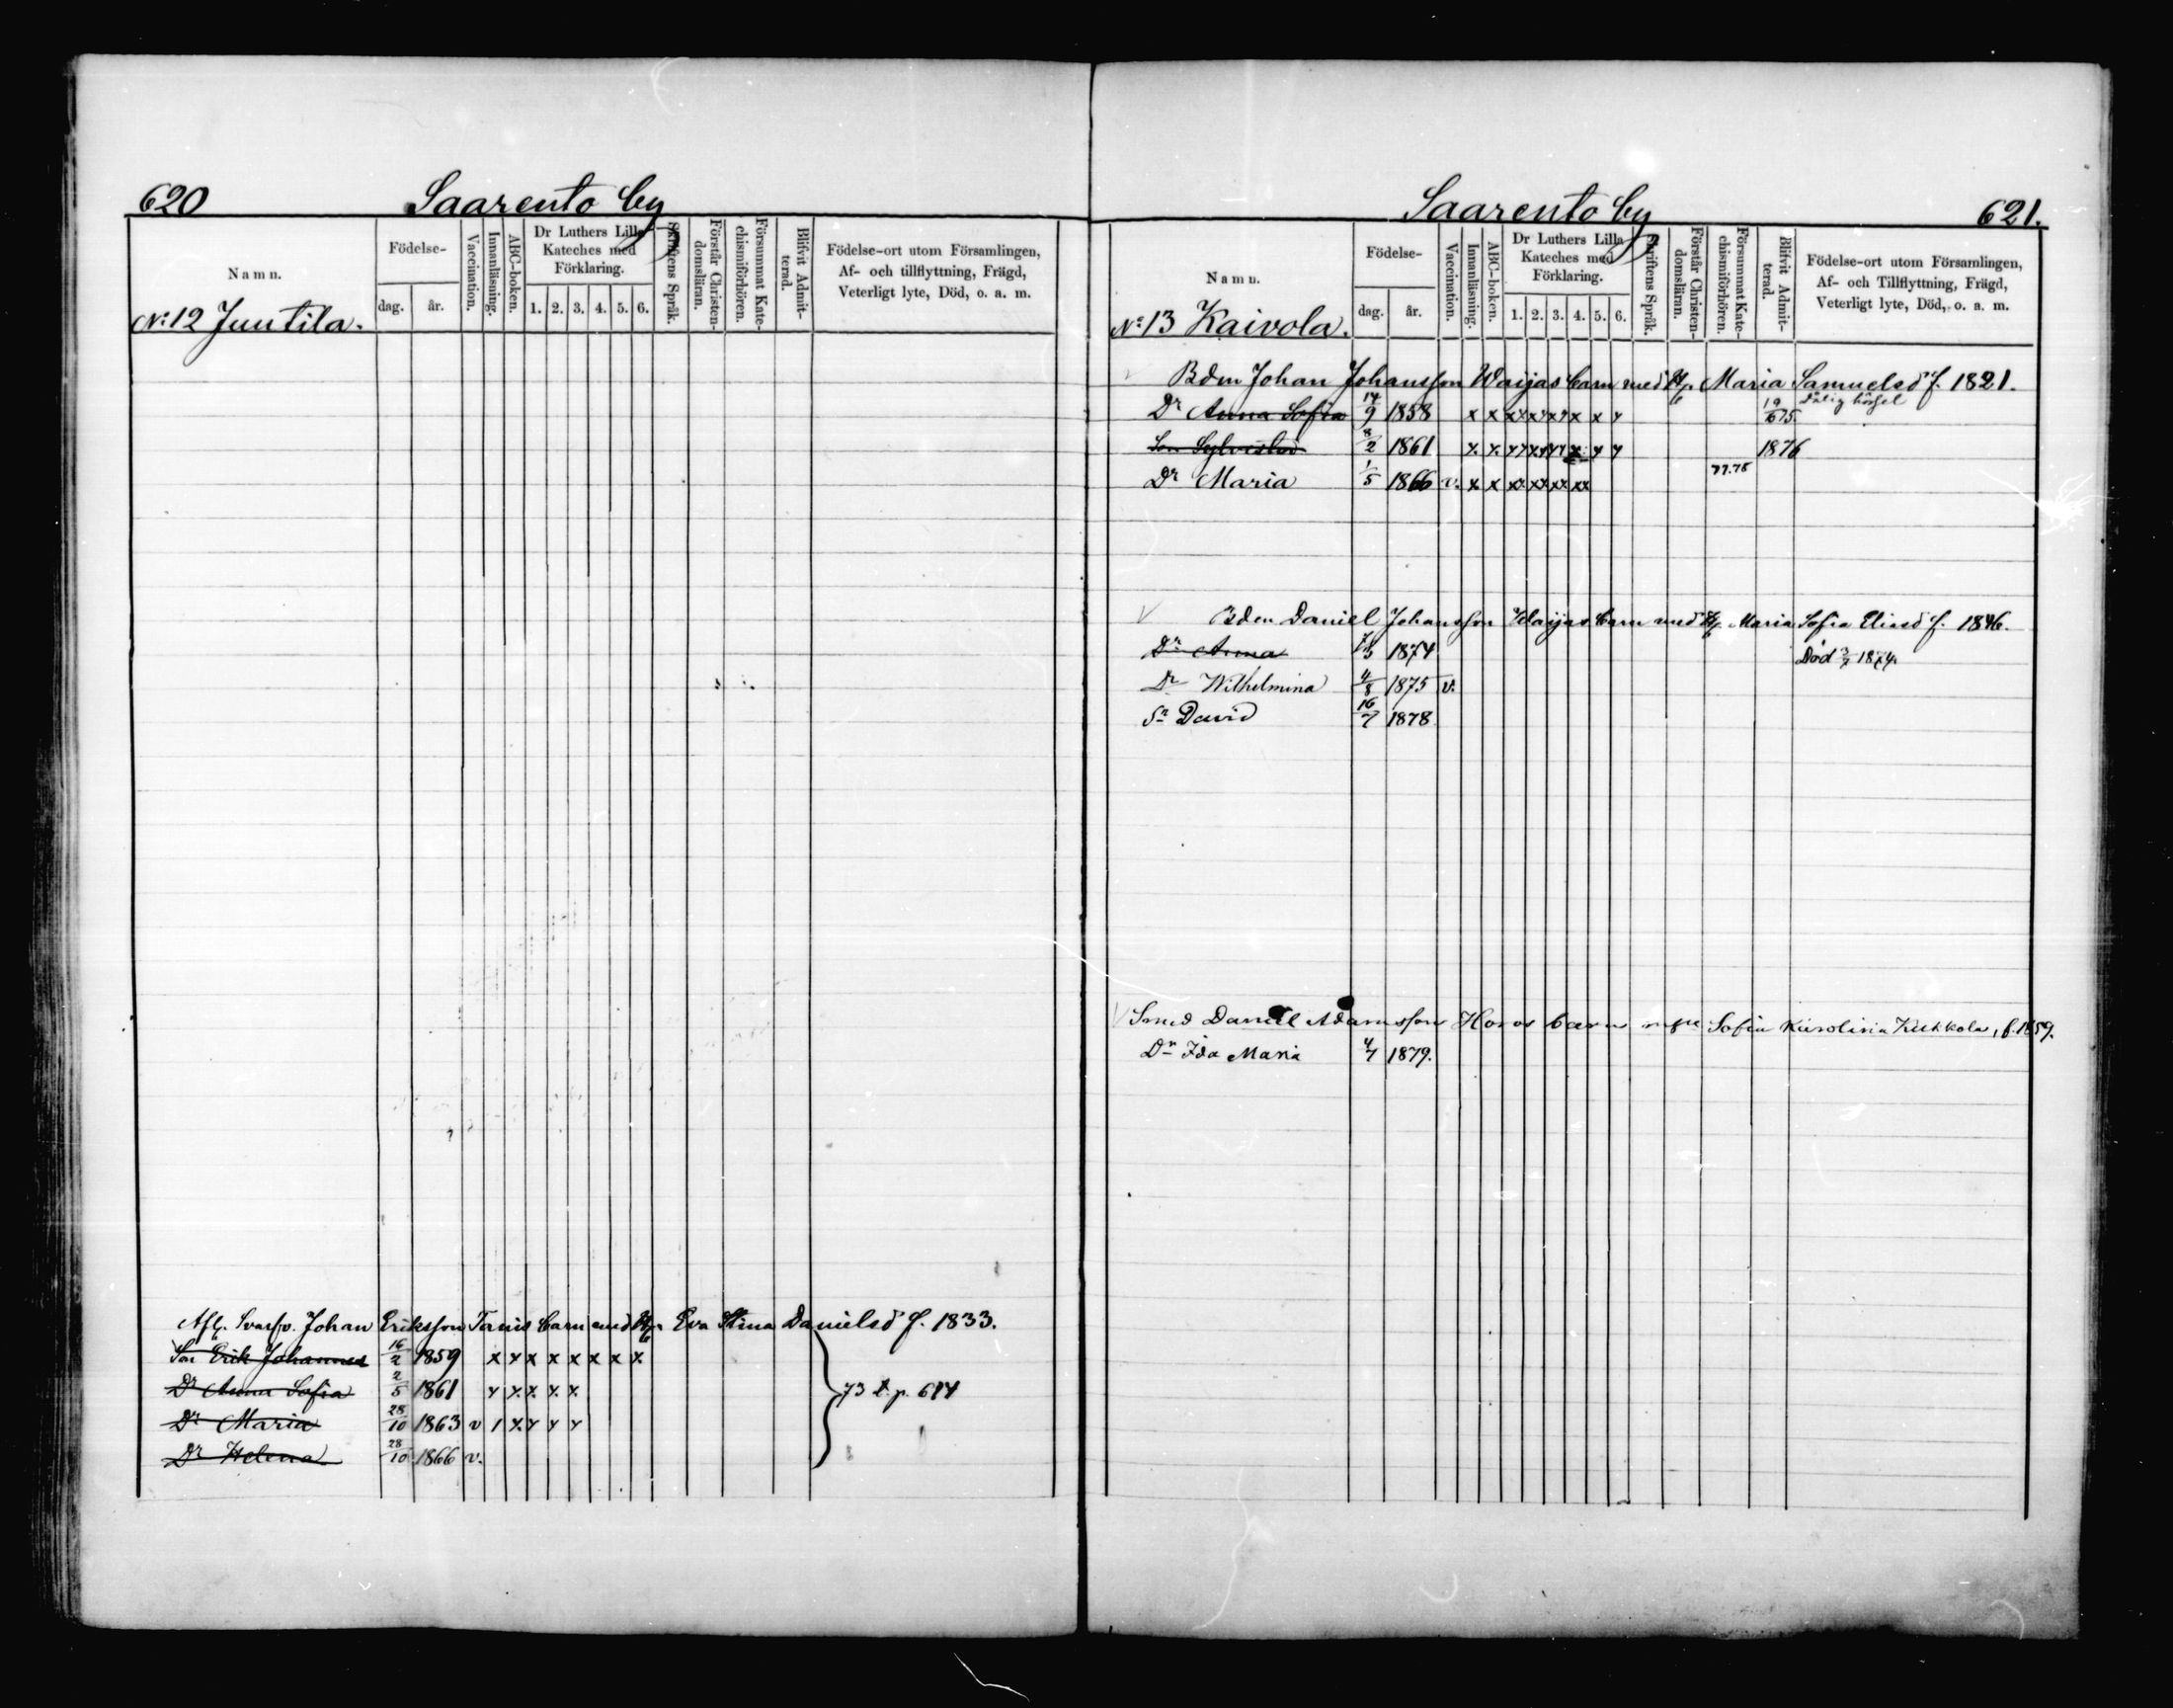 620 Saarento by
Namn. Födelse- dag. år. Vaccination. Innanläsning. ABC-boken. Dr Luthers Lilla Kateches med Förklaring. 1. 2. 3. 4. 5. 6. Skriftens Språk. Förstår Christen-domsläran. Försummat Kate-chismiförhören. Blifvit Admit-terad. Födelse-ort utom Församlingen, Af- och tillflyttning, Frägd, Veterligt lyte, Död, o. a. m.
No 12 Juutila.
Afl. Svarfv. Johan Eriksson Tanis barn med H. Eva Stina Danielsd f. 1833.
Son Erik Johannes 16/2 1859 x x x x x x x x
Dr Anna Sofia 2/5 1861 x x x x x
Dr Maria 28/10 1863 v 1 x x x x
Dr Helena 28/10 1866 v.
73 t. p. 614
Saarento by 621.
Namn. Födelse- dag. år. Vaccination. Innanläsning. ABC-boken. Dr Luthers Lilla Kateches med Förklaring. 1. 2. 3. 4. 5. 6. Skriftens Språk. Förstår Christen-domsläran. Försummat Kate-chismiförhören. Blifvit Admit-terad. Födelse-ort utom Församlingen, Af- och Tillflyttning, Frägd, Veterligt lyte, Död, o. a. m.
No 13 Kaivola.
Bden Johan Johansson Waijas barn med H. Maria Samuelsd f. 1821.
Dr Anna Sofia 14/9 1858 x x xx xx xx x x x 19/6 75. dålig hörsel
Son Sylvester 8/2 1861 x x xx xx xx x x x 1876
Dr Maria 1/5 1866 v. x x xx xx xx xx 77.78
Bden Daniel Johansson Waijas barn med H. Maria Sofia Eliasd f. 1846.
Dr Anna 1874 Död 1874.
Dr Wilhelmina 4/8 1875 v.
Sn David 16/7 1878
Smed Daniel Adamsson Horos barn Sofia Karolina Kukkola, f. 1859.
Dr Ida Maria 4/7 1879.